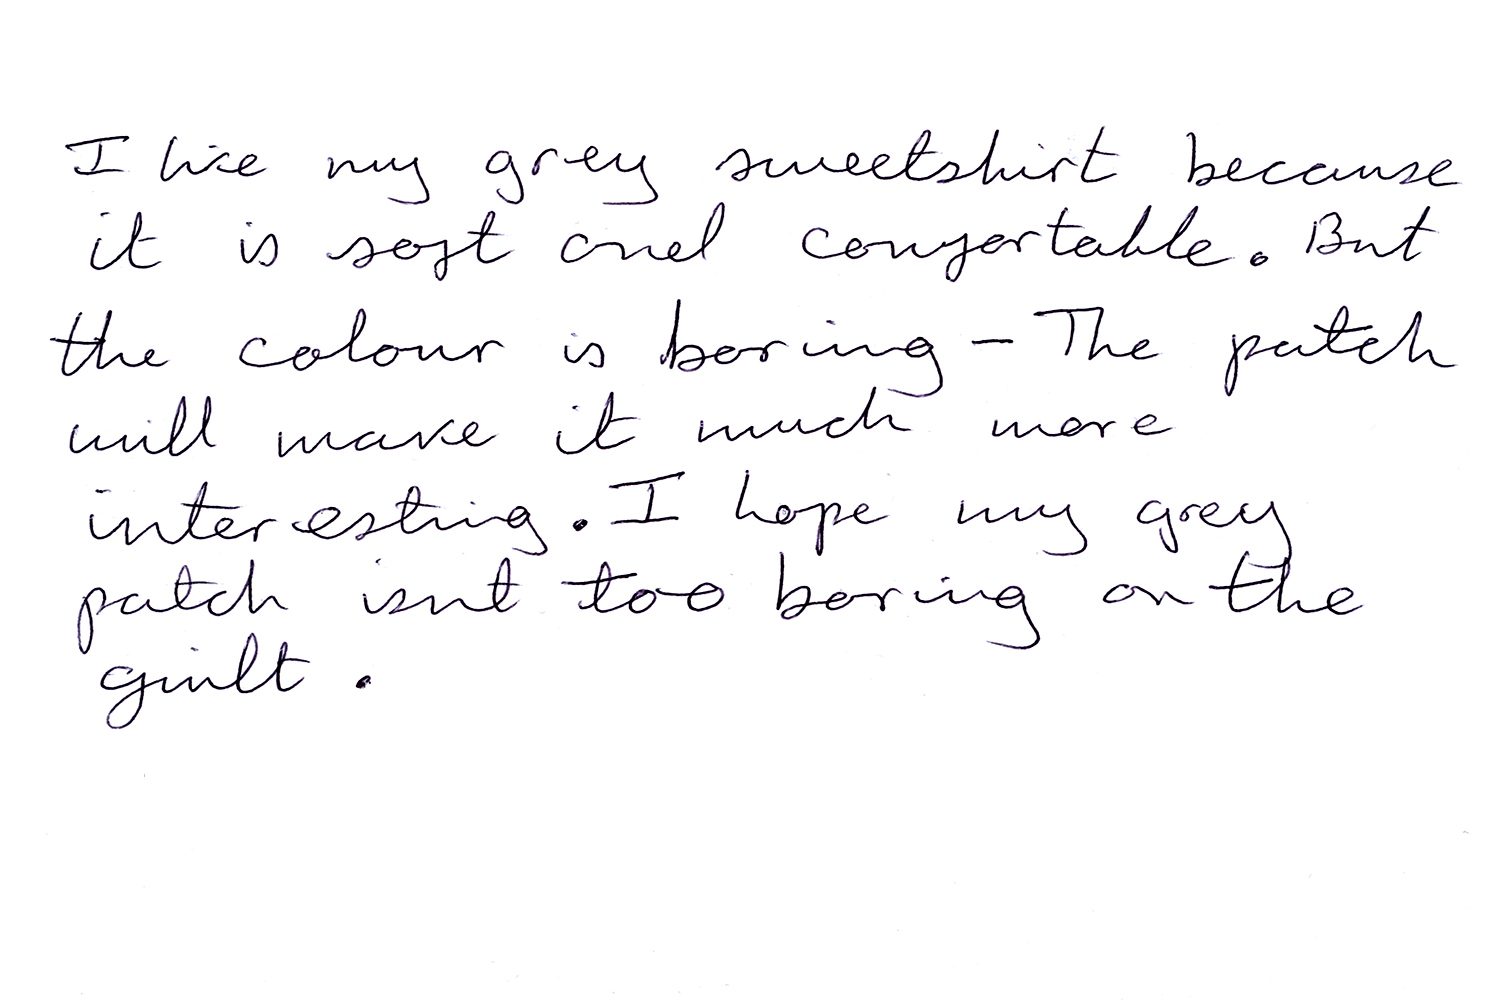 I like my grey sweetshirt because
it is soft and confortable. But
the colour is boring - The patch
will make it much more
interesting. I hope my grey
patch isnt too boring on the
quilt.